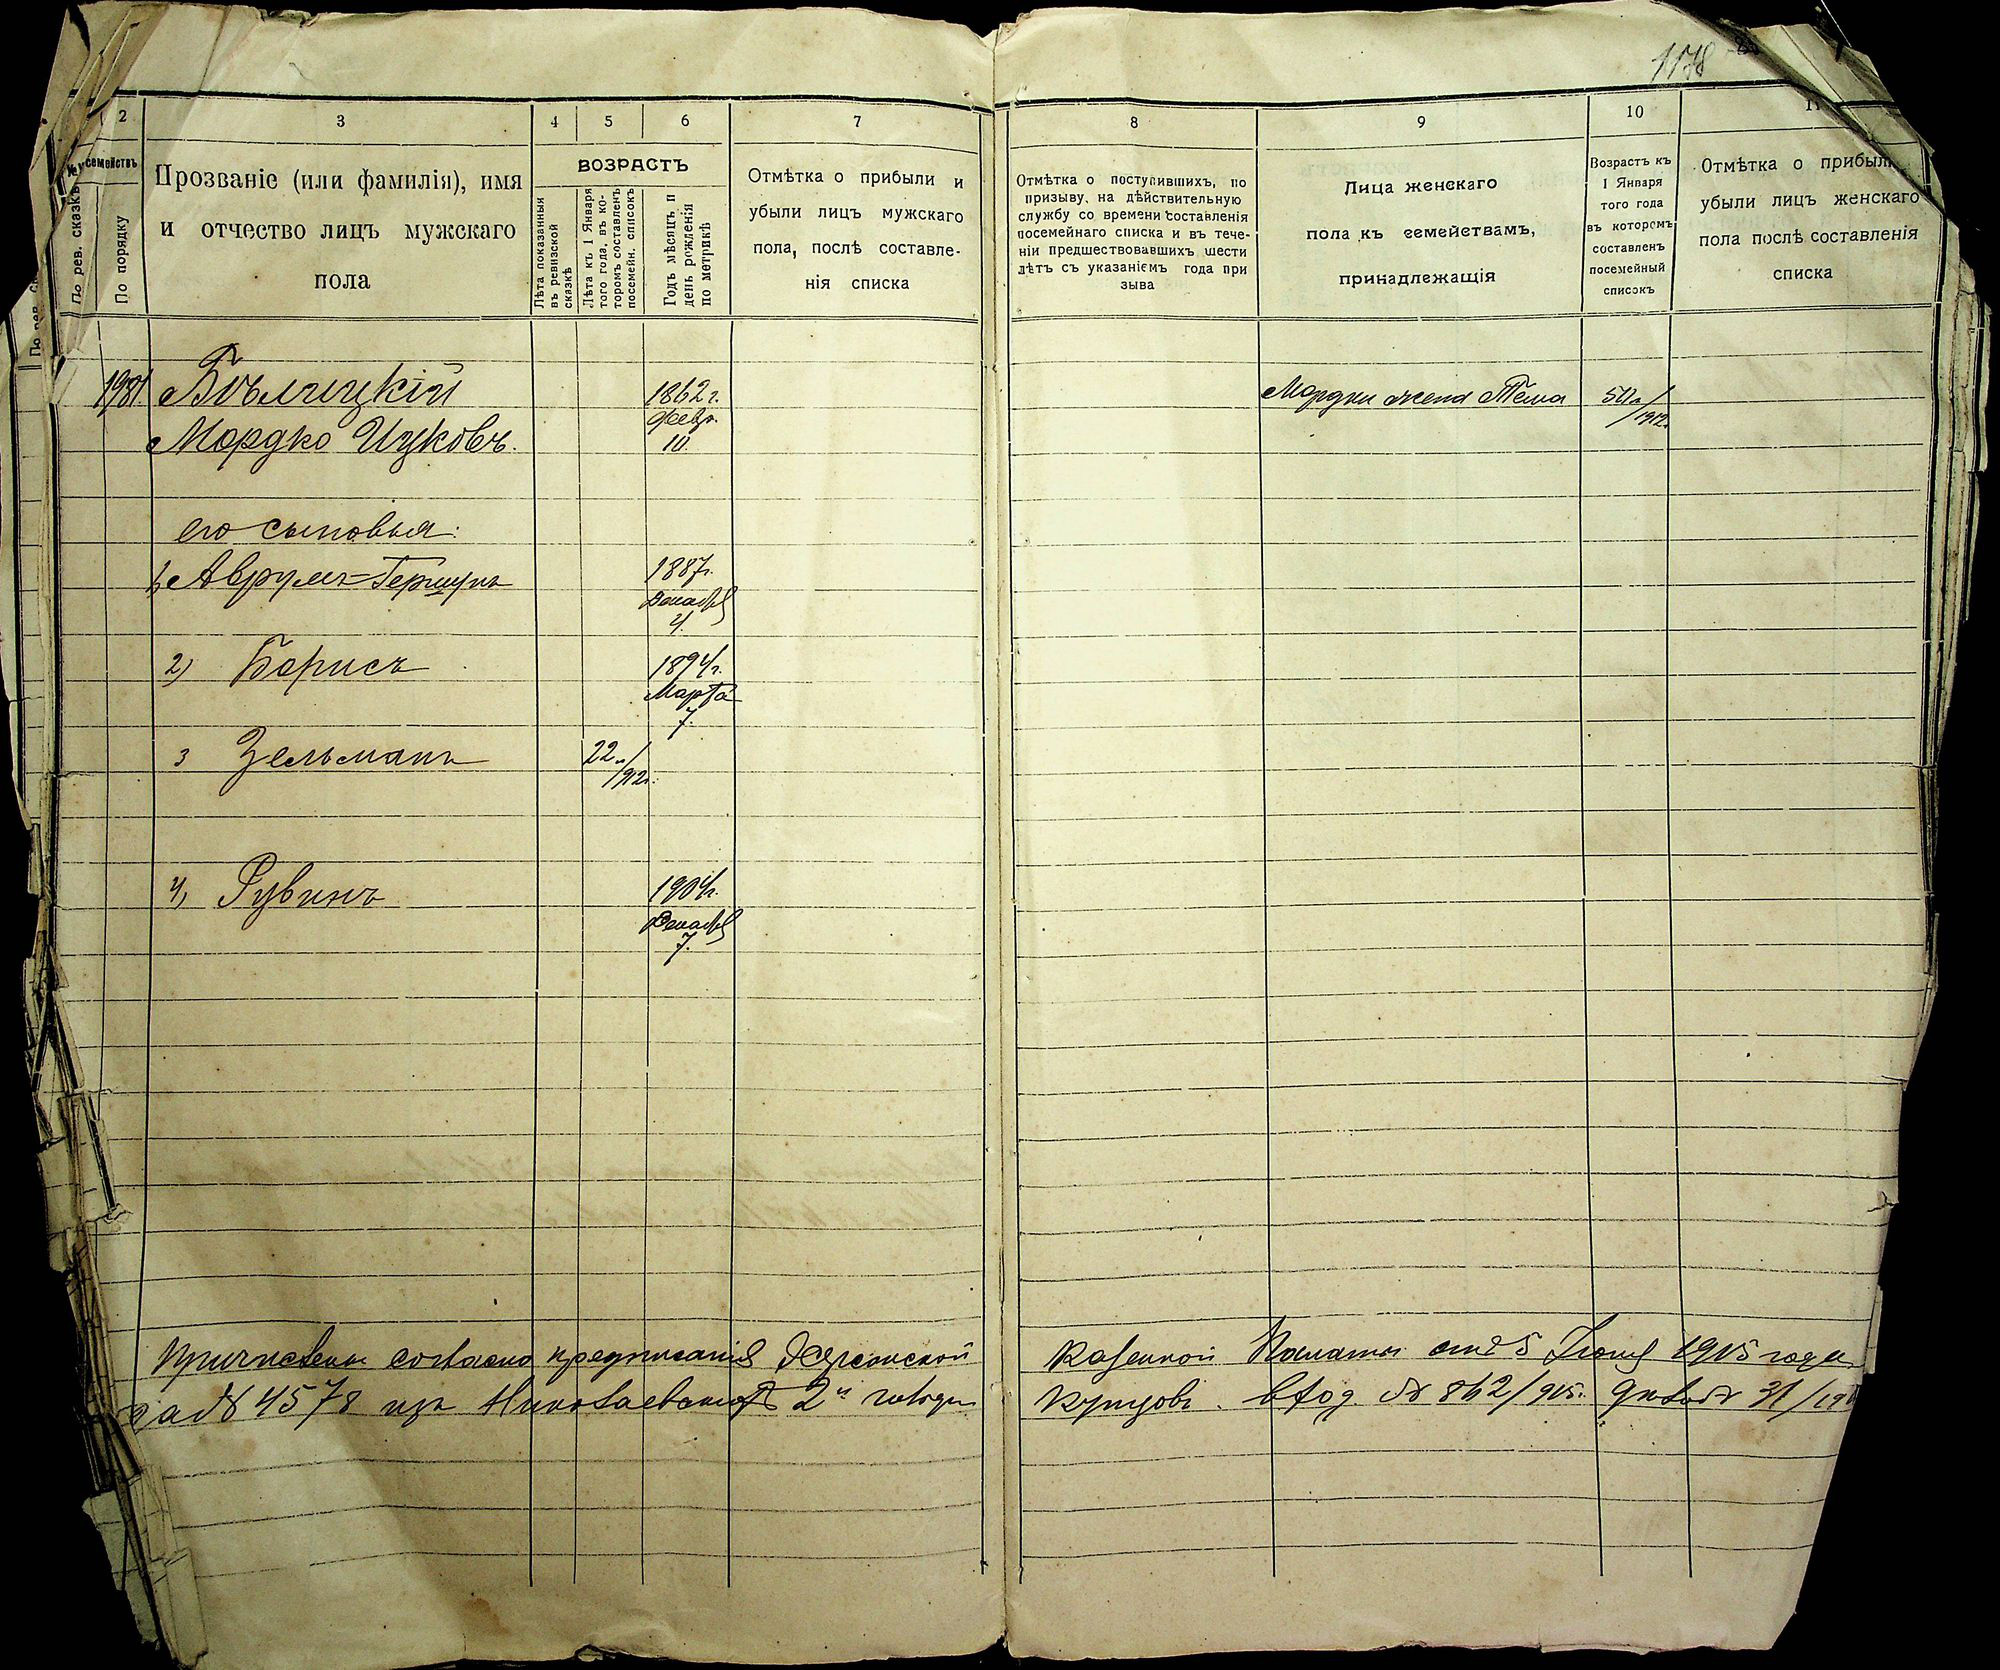 1178
2
3
4
5
6
7
8
9
10
11
№№ семействъ
По рев. сказкѣ
По порядку
Прозваніе (или фамилія), имя
и отчество лицъ мужскаго
пола
ВОЗРАСТЪ
Лѣта показанныя
въ ревизской
сказкѣ
Лѣта къ 1 Января
того года, въ ко-
торомъ составленъ
посемейн. списокъ
Годъ мѣсяцъ и
день рожденія
по метрикѣ
Отмѣтка о прибыли и
убыли лицъ мужскаго
пола, послѣ составле-
нія списка
Отмѣтка о поступившихъ, по
призыву, на дѣйствительную
службу со времени составленія
посемейнаго списка и въ тече-
ніи предшествовавшихъ шести
лѣтъ съ указаніемъ года при
зыва
Лица женскаго
пола къ семействамъ,
принадлежащія
Возрастъ къ
1 Января
того года
въ которомъ
составленъ
посемейный
списокъ
Отмѣтка о прибыли
убыли лицъ женскаго
пола послѣ составленія
списка
1981 Бѣлицкій 1862 г. Мордки жена Тема
Февр. 1912
Мордко Ицковъ. 10.
его сыновья:
1, Аврумъ-Гершунъ 1887 г.
Декабр
4.
2) Борисъ 1894 г.
Марта
7.
3 Зельманъ 22 л/912 г.
4, Рувинъ 1904 г.
Декабр
7.
Причислены согласно предписанія Херсонской Казенной Палаты отъ 5 Іюня 1915 года
за № 4578 изъ Николаевскихъ 2й гильдіи Купцовъ. Вход. № 862/915 г. 31